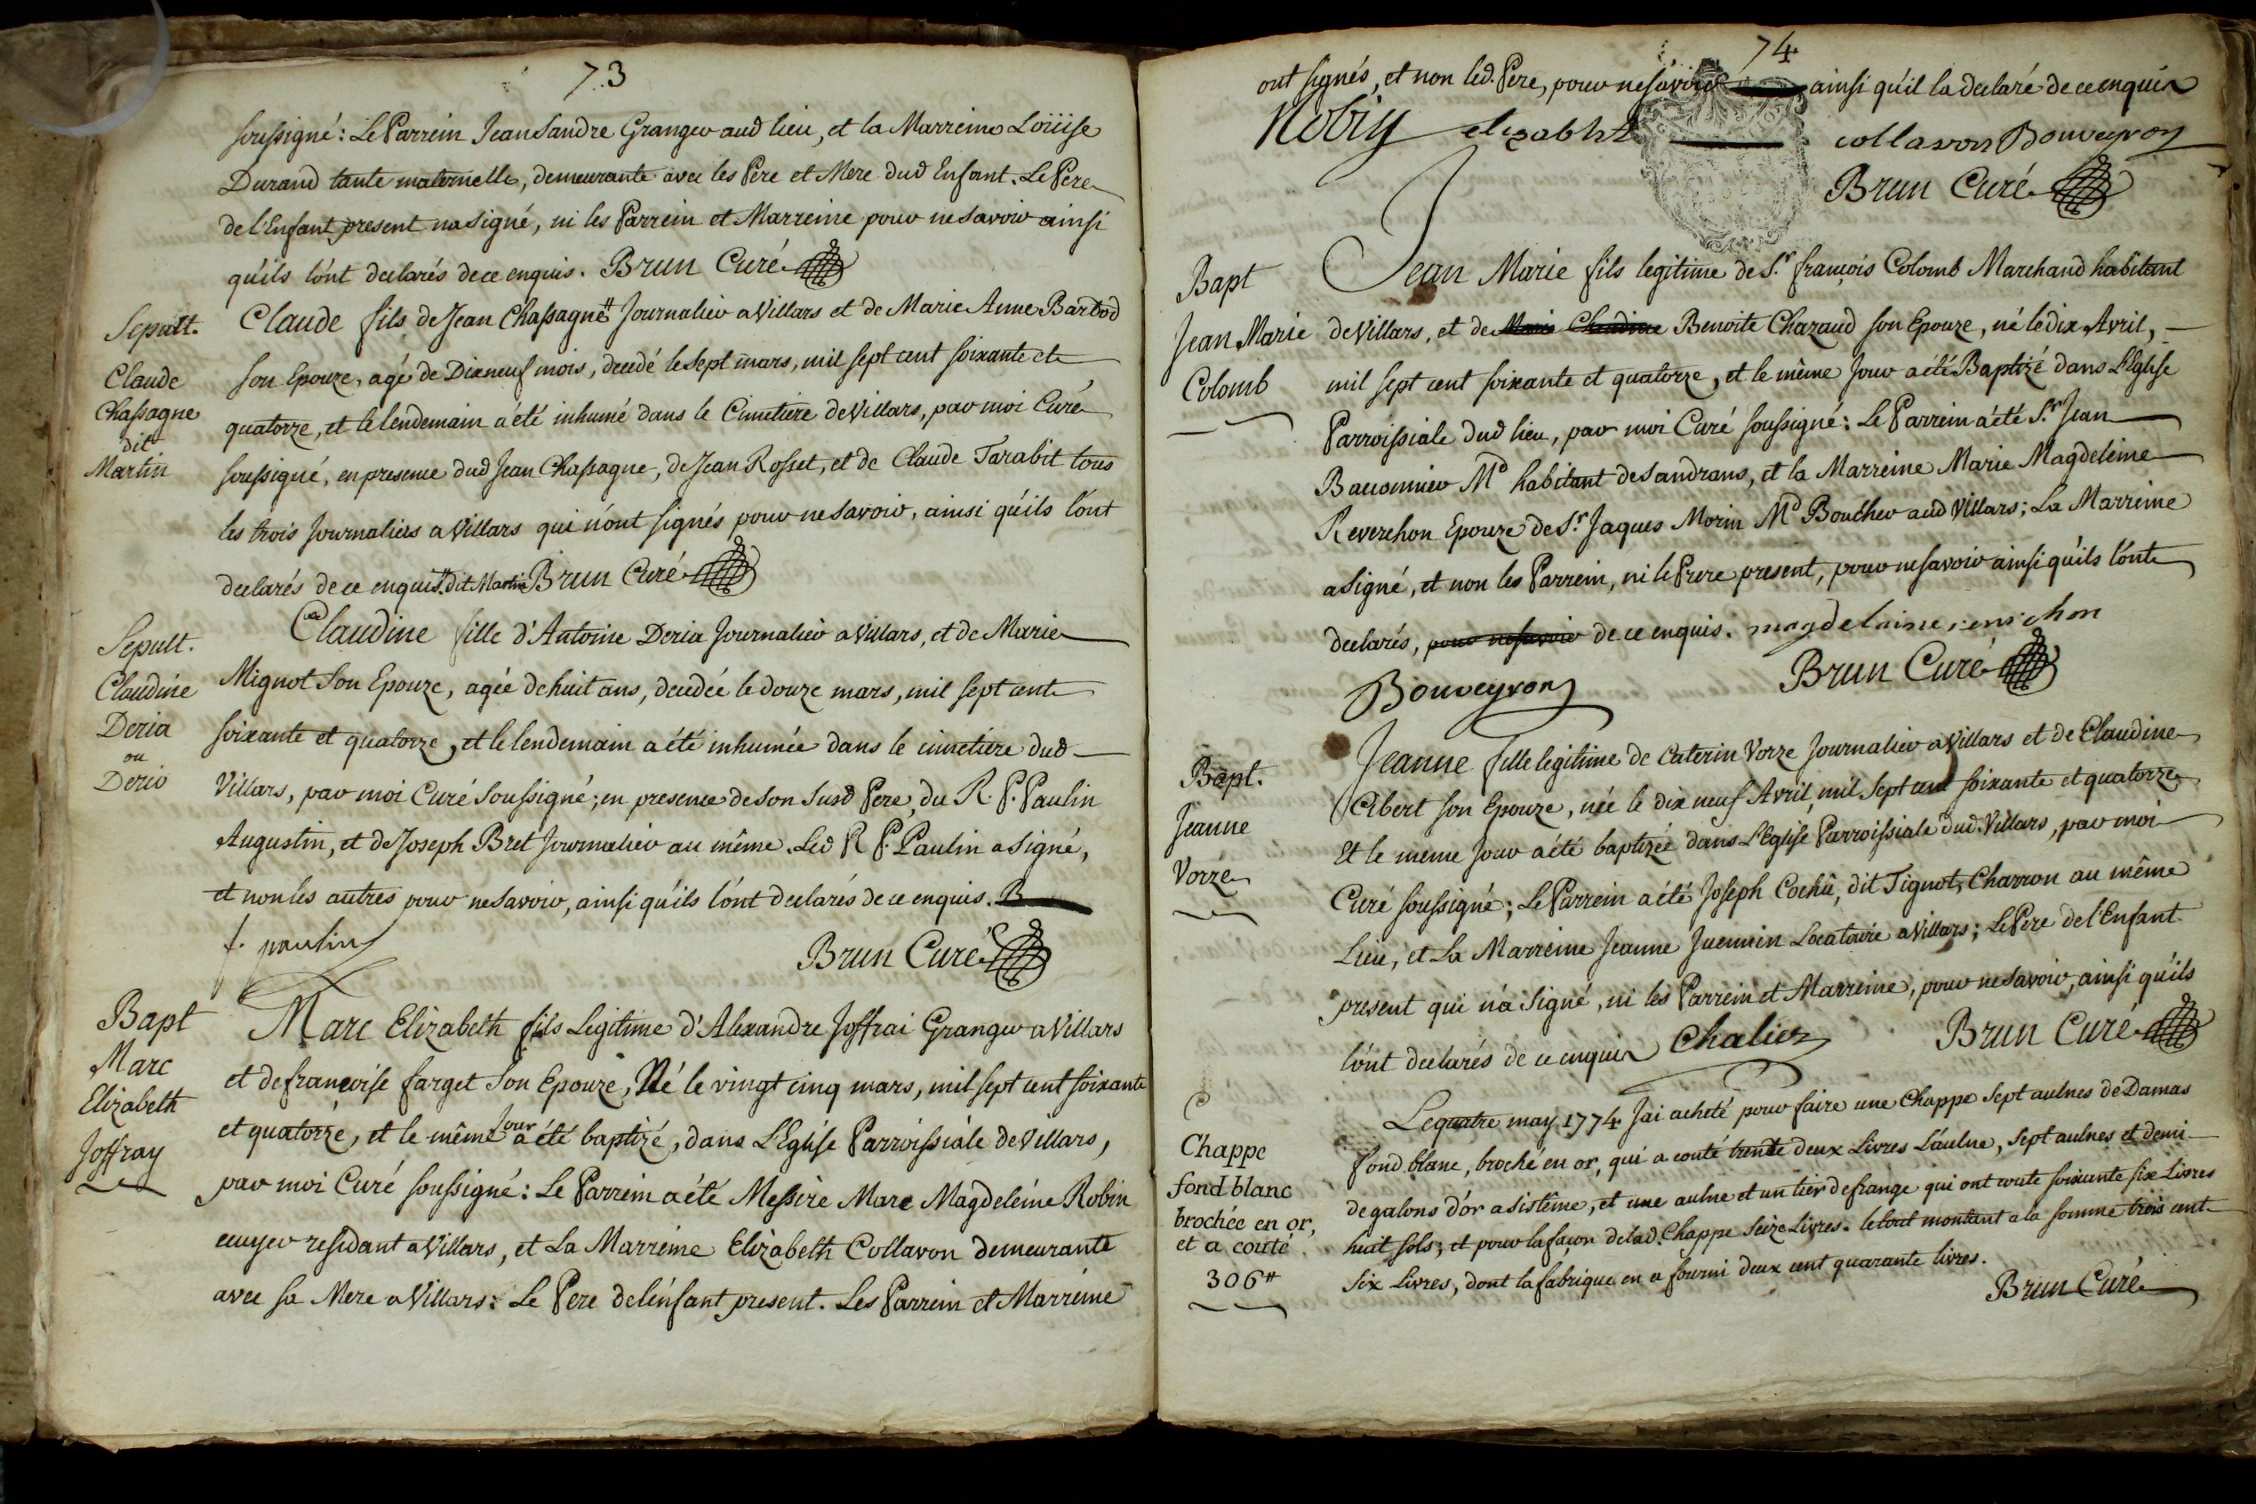 73
soussigné : Le Parrein Jean Sandre Granger aud lieu, et la Marreine Loüise
Durand tante maternelle, demeurante avec les Pere et Mere dud Enfant. Le Pere
de l'Enfant present na signé, ni les Parrein et Marreine pour ne savoir ainsi
qu'ils l'ont declarés de ce enquis. Brun Curé
Sepult.
Claude
Chassagne
dit
Martin
Claude fils de Jean Chassagne # Journalier a Villars et de Marie Anne Barbod
son Epouze, agé de Dixneuf mois, decedé le sept mars, mil sept cent soixante et
quatorze, et le lendemain a été inhumé dans le Cimetiere de Villars, par moi Curé
soussigné, en presence dud Jean Chassagne, de Jean Rosset, et de Claude Tarabit tous
les trois Journaliers a Villars qui n'ont signés pour ne savoir, ainsi qu'ils l'ont
declarés de ce enquis. # dit Martin Brun Curé
Sepult.
Claudine
Deria
ou
Derio
Claudine fille d'Antoine Deria Journalier a Villars, et de Marie
Mignot Son Epouze, agée de huit ans, decedée le douze mars, mil sept cent
soixante et quatorze, et le lendemain a été inhumée dans le cimetiere dud
Villars, par moi Curé Soussigné ; en presence de son susd Pere, du R. P. Paulin
Augustin, et de Joseph Bret Journalier au même. Led R P. Paulin a signé,
et non les autres pour ne savoir, ainsi qu'ils l'ont declarés de ce enquis. B
f. paulin
Brun Curé
Bapt
Marc
Elizabeth
Joffray
Marc Elizabeth fils Legitime d'Alexandre Joffrai Granger a Villars
et de francoise farget Son Epouze, Né le vingt cinq mars, mil sept cent soixante
et quatorze, et le même Jour a été baptizé, dans L'Eglise Parroissiale de Villars,
par moi Curé soussigné : Le Parrein a été Messire Marc Magdeleine Robin
ecuyer residant a Villars, et La Marreine Elizabeth Collavon demeurante
avec sa Mere a Villars : Le Pere de l'enfant present. Les Parrein et Marreine
74
ont signés, et non led. Pere, pour ne savoir ainsi qu'il la declaré de ce enquis
Robin elizabht collavon Bouveyron
Brun Curé
Bapt
Jean Marie
Colomb
Jean Marie fils legitime de S.r françois Colomb Marchand habitant
de Villars, et de Marie Claudine Benoite Chazaud son Epouze, né le dix Avril,
mil sept cent soixante et quatorze, et le même Jour a été Baptizé dans L'Eglise
Parroissiale dud lieu, par moi Curé soussigné : Le Parrein a été S.r Jean
Bauonnier M.d habitant de Sandrans, et la Marreine Marie Magdeleine
Reverchon Epouze de S.r Jaques Morin M.d Boucher aud Villars ; La Marreine
a signé, et non les Parrein, ni le Prere present, pour ne savoir ainsi qu'ils l'ont
declarés, pour ne savoir de ce enquis. magdelaine
Bouveyron
Brun Curé
Bapt.
Jeanne
Vorze
Jeanne fille legitime de Caterin Vorze Journalier a Villars et de Claudine
Cibert son Epouze, née le dix neuf Avril mil sept cent soixante et quatorze
Et le meme Jour a été baptizée dans L'Eglise Parroissiale dud. Villars, par moi
Curé soussigné ; Le Parrein a été Joseph Cochü, dit Tignot, Charron au même
Lieu, et La Marreine Jeanne Juennin Locataire a Villars ; Le Pere de l'Enfant
present qui n'a signé, ni les Parrein et Marreine, pour ne savoir, ainsi qu'ils
l'ont declarés de ce enquis Chalier Brun Curé
Chappe
fond blanc
brochée en or,
et a couté
306#
Le quatre may 1774 J'ai acheté pour faire une Chappe sept aulnes de Damas
fond blanc, broché en or, qui a couté trente deux Livres L'aulne, sept aulnes et demi
de galons d'or a sistême, et une aulne et un tier de frange qui ont couté soixante six Livres
huit sols ; et pour la façon de lad. Chappe seize Livres. le tout montant a la somme trois cent
six Livres, dont la fabrique en a fourni deux cent quarante livres.
Brun Curé